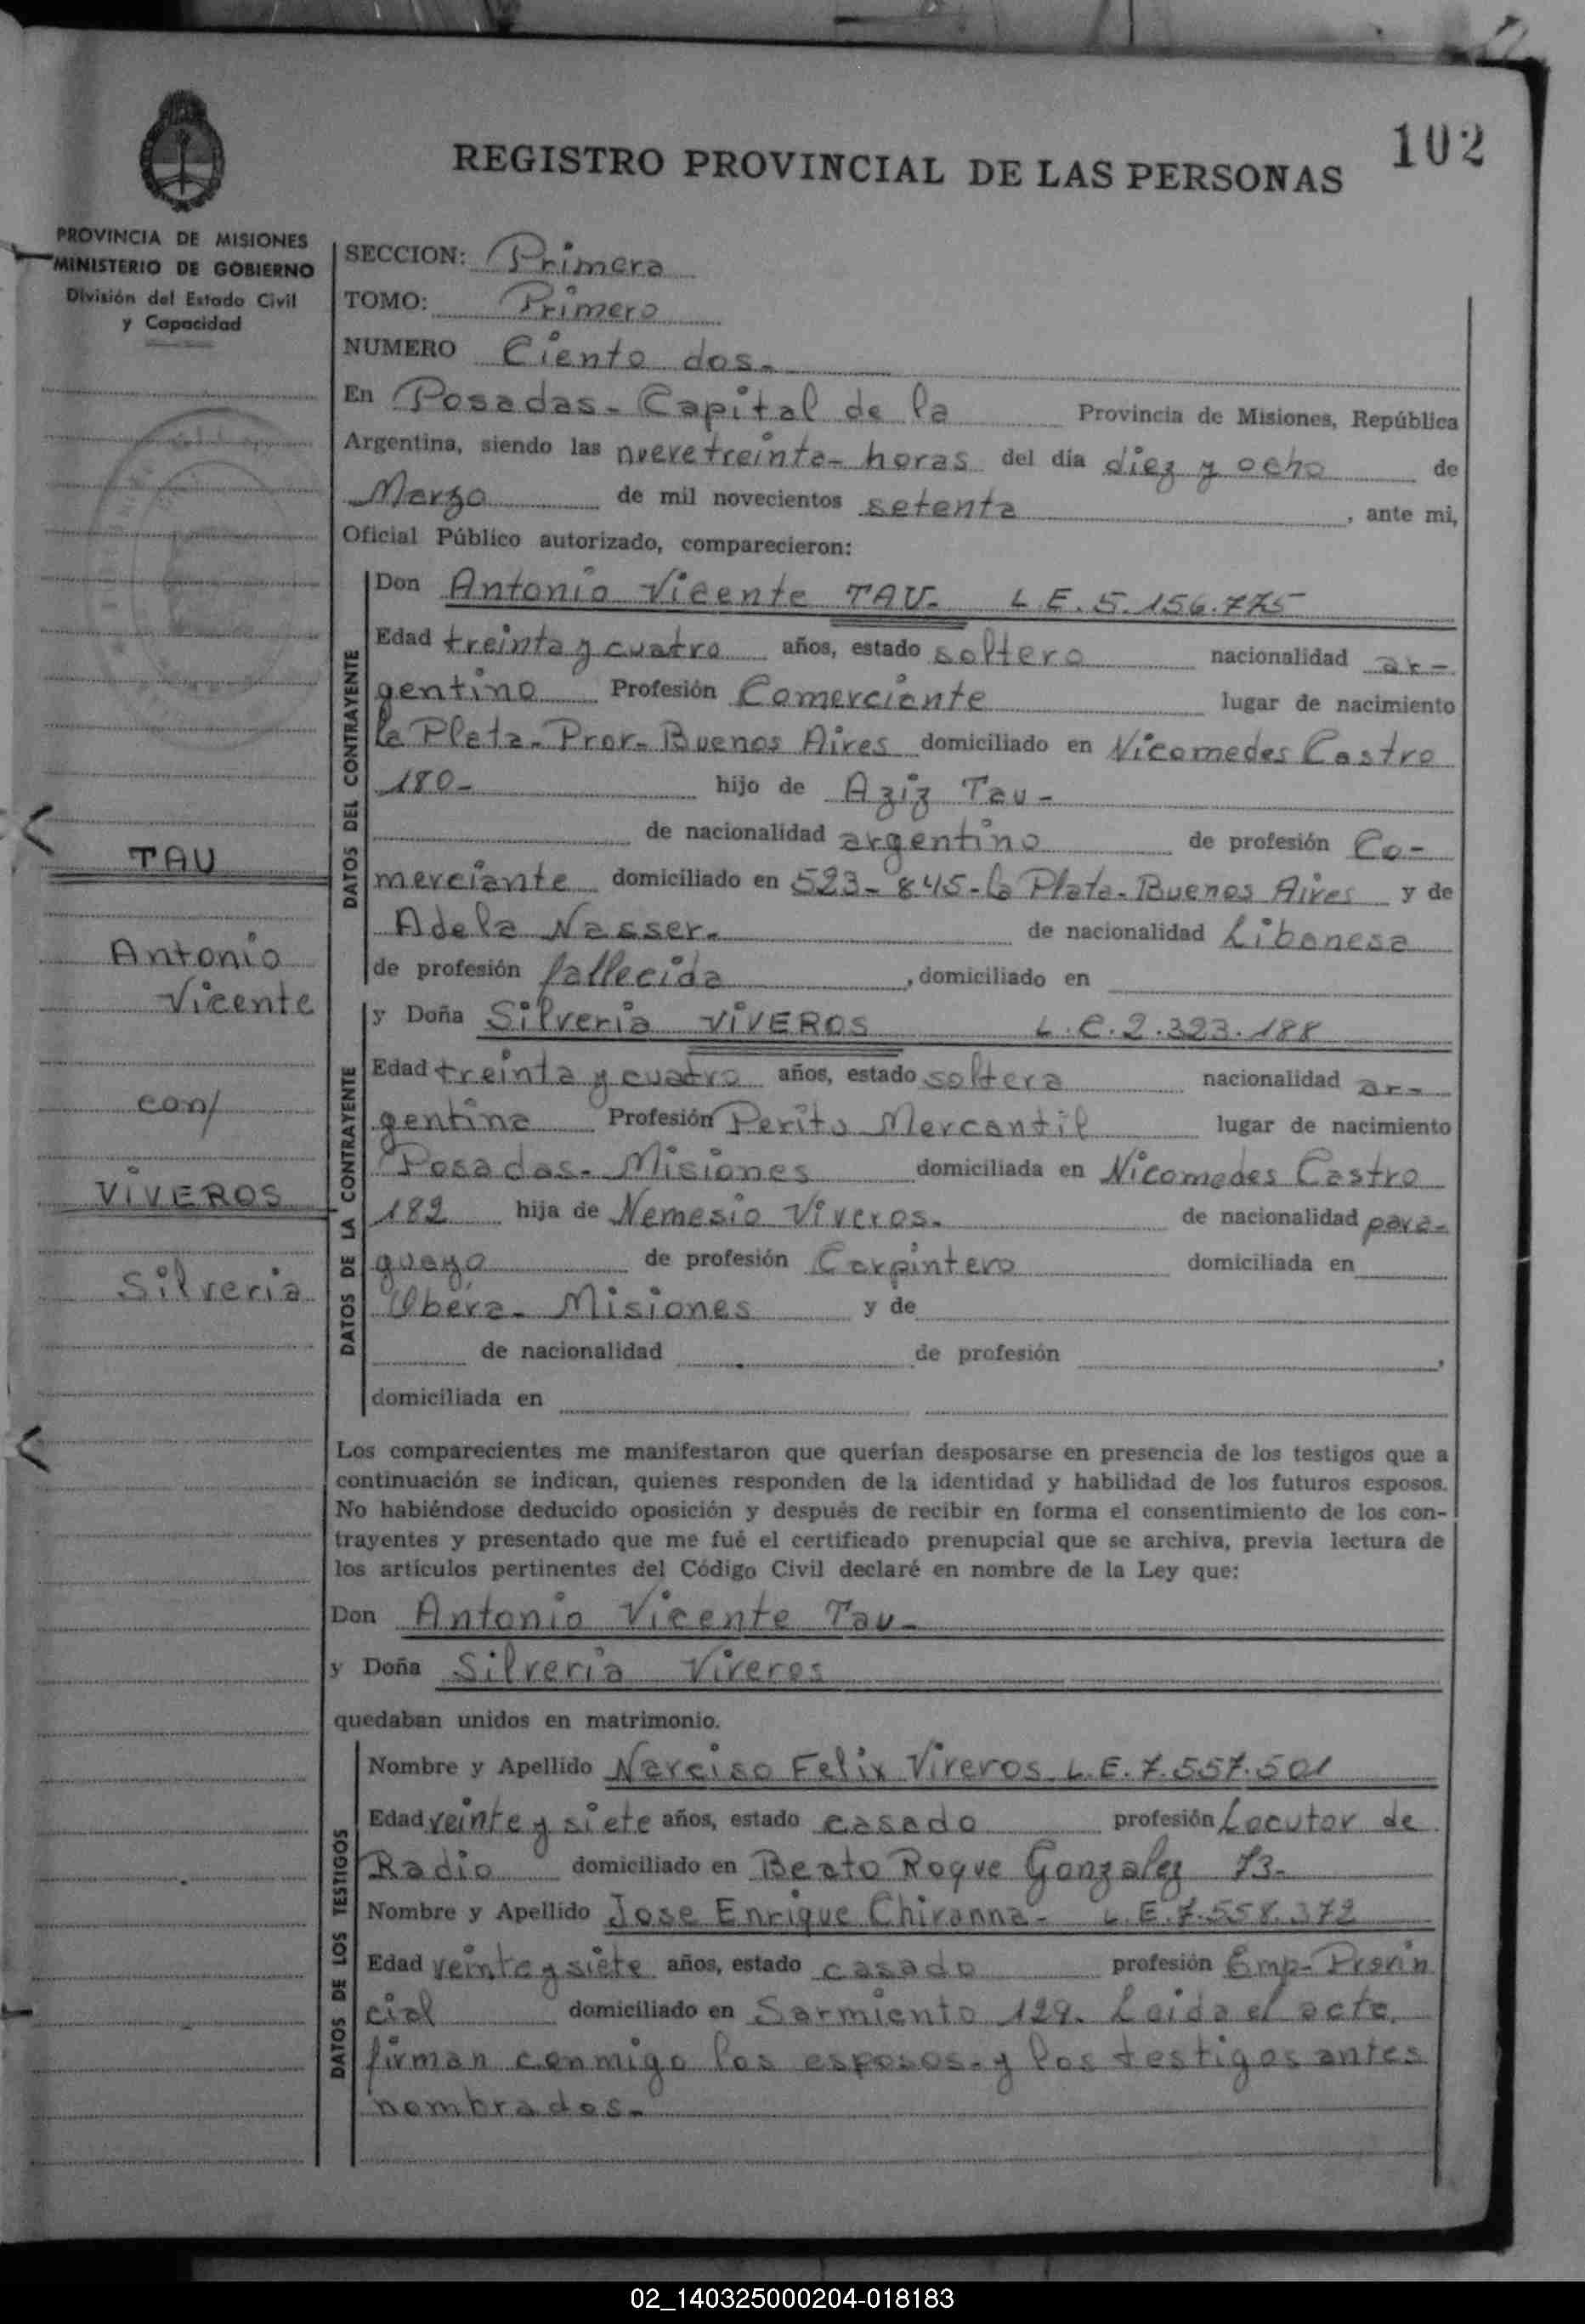 102
REGISTRO PROVINCIAL DE LAS PERSONAS
PROVINCIA DE MISIONES
MINISTERIO DE GOBIERNO
División del Estado Civil
y Capacidad
SECCION: Primera
TOMO: Primero
NUMERO Ciento dos-
En Posadas- Capital de la Provincia de Misiones, República
Argentina, siendo las nueve treinta- horas del día diez y ocho de
Marzo de mil novecientos setenta, ante mi,
Oficial Público autorizado, comparecieron:
DATOS DEL CONTRAYENTE
Don Antonio Vicente TAU- L E. 5.156.775
Edad treinta y cuatro años, estado soltero nacionalidad ar-
gentino Profesión Comerciante lugar de nacimiento
la Plata- Prov- Buenos Aires domiciliado en Nicomedes Castro
180- hijo de Aziz Tau-
de nacionalidad argentino de profesión Co-
merciante domiciliado en 523- 845- la Plata- Buenos Aires y de
Adela Nasser- de nacionalidad Libanesa
de profesión fallecida, domiciliado en
TAU
Antonio
Vicente
con/
VIVEROS
Silveria
DATOS DE LA CONTRAYENTE
y Doña Silveria VIVEROS L. C. 2.323.188
Edad treinta y cuatro años, estado soltera nacionalidad ar-
gentina Profesión Perito Mercantil lugar de nacimiento
Posadas- Misiones domiciliada en Nicomedes Castro
182 hija de Nemesio Viveros- de nacionalidad para-
guayo de profesión Carpintero domiciliada en
Oberá- Misiones y de
de nacionalidad de profesión ,
domiciliada en
Los comparecientes me manifestaron que querían desposarse en presencia de los testigos que a
continuación se indican, quienes responden de la identidad y habilidad de los futuros esposos.
No habiéndose deducido oposición y después de recibir en forma el consentimiento de los con-
trayentes y presentado que me fué el certificado prenupcial que se archiva, previa lectura de
los artículos pertinentes del Código Civil declaré en nombre de la Ley que:
Don Antonio Vicente Tau-
y Doña Silveria Viveros
quedaban unidos en matrimonio.
DATOS DE LOS TESTIGOS
Nombre y Apellido Narciso Felix Viveros L. E. 7.557.501
Edad veinte y siete años, estado casado profesión Locutor de
Radio domiciliado en Beato Roque Gonzalez 73-
Nombre y Apellido Jose Enrique Chivanna- L. E. 7.558.372
Edad veinte y siete años, estado casado profesión Emp- Provin
cial domiciliado en Sarmiento 129. Leida el acta,
firman conmigo los esposos- y los testigos antes
nombrados-
02_140325000204-018183